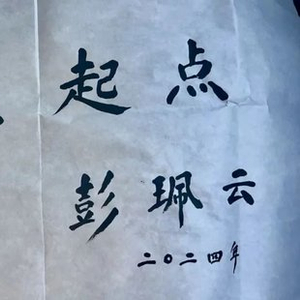 起点
彭珮云
二〇二四年